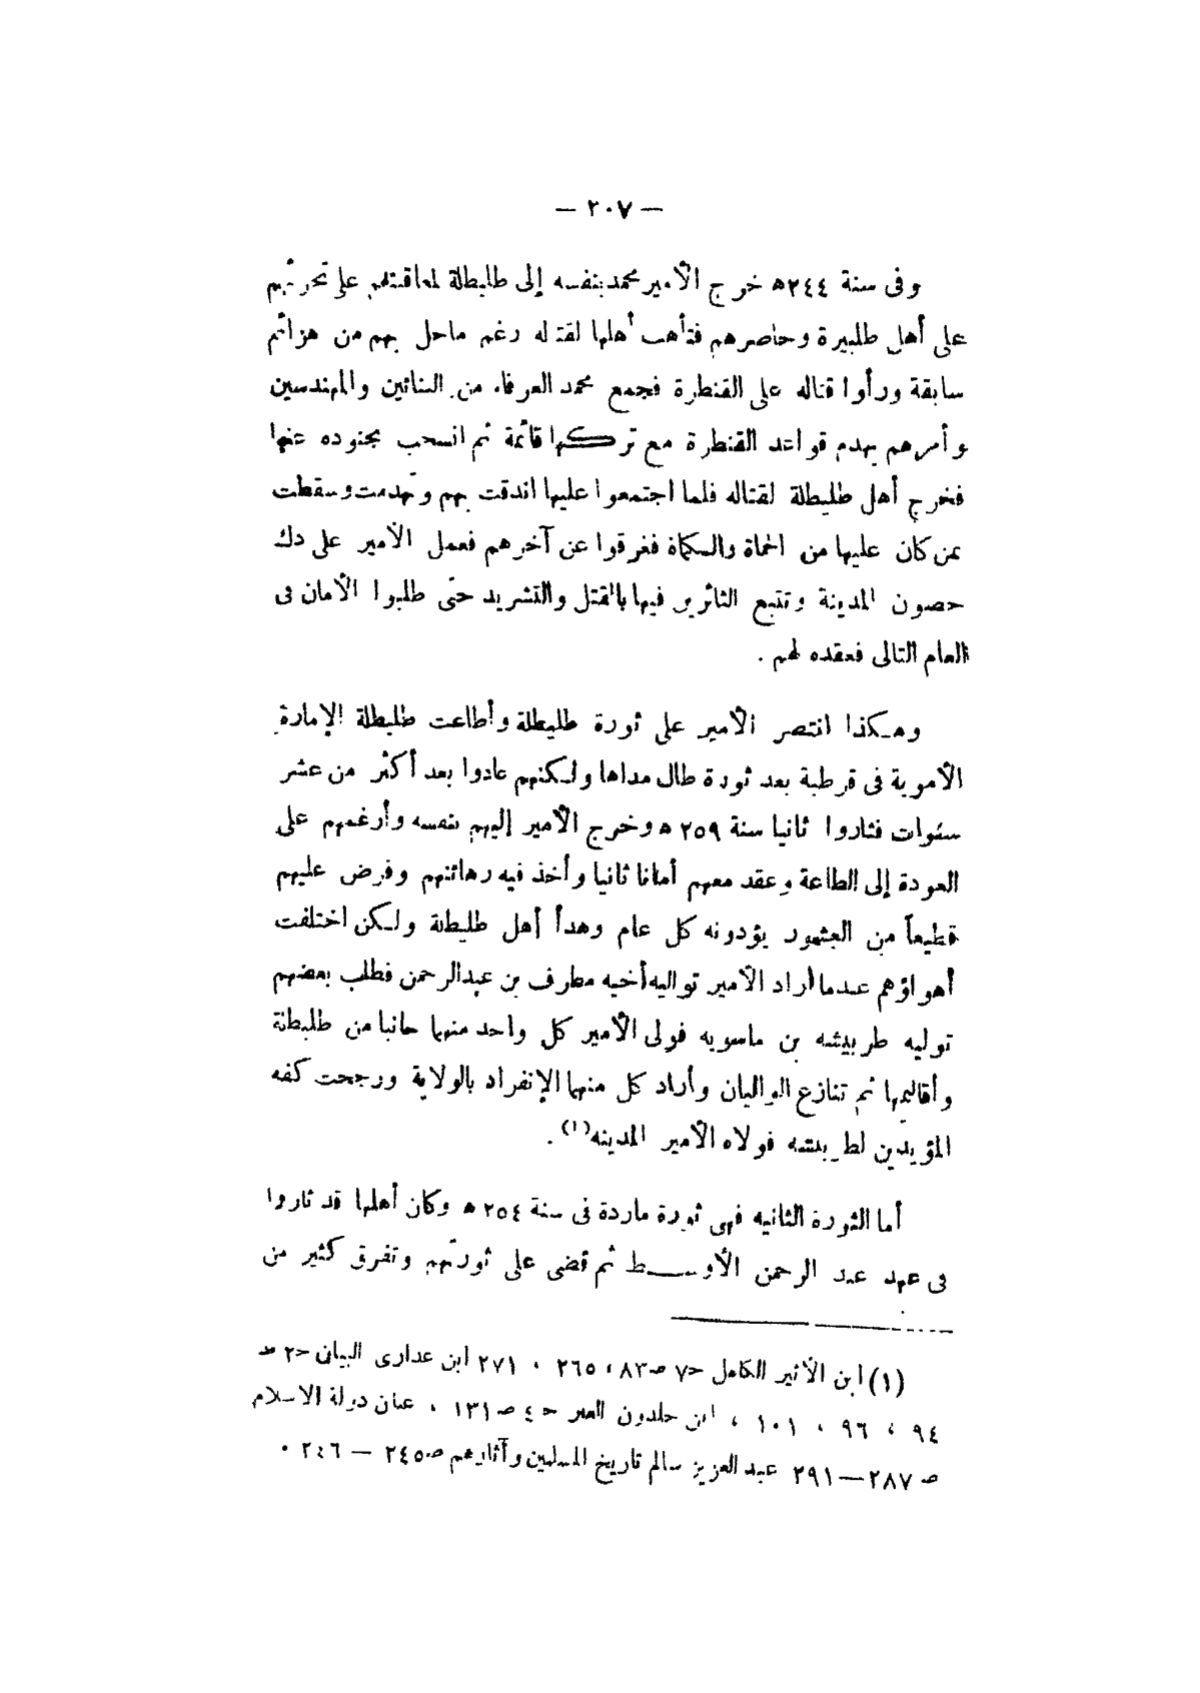 — ٢٠٧ —
وفى سنة ٢٤٤ه خرج الأمير محمد بنفسه إلى طليطلة لمعاقبتهم على تحرشهم
على أهل طلبيرة وحاصرهم فتأهب أهلها لقتاله رغم ماحل بهم من هزائم
سابقة ورأوا قتاله على القنطرة فجمع محمد العرفاء من البنائين والمهندسين
وأمرهم بهدم قواعد القنطرة مع تركها قائمة ثم انسحب بجنوده عنها
فخرج أهل طليطلة لقتاله فلما اجتمعوا عليها اندقت بهم وتهدمت وسقطت
بمن كان عليها من الحماة والكماة فغرقوا عن آخرهم فعمل الأمير على دك
حصون المدينة وتتبع الثائرين فيها بالقتل والتشريد حتى طلبوا الأمان فى
العام التالى فعقده لهم .
وهكذا انتصر الأمير على ثورة طليطلة وأطاعت طليطلة الإمارة
الأموية فى قرطبة بعد ثورة طال مداها ولكنهم عادوا بعد أكثر من عشر
سنوات فثاروا ثانيا سنة ٢٥٩ ه وخرج الأمير إليهم بنفسه وأرغمهم على
العودة إلى الطاعة وعقد معهم أمانا ثانيا وأخذ فيه رهائنهم وفرض عليهم
قطيعاً من العشور يؤدونه كل عام وهدأ أهل طليطلة ولكن اختلفت
أهواؤهم عندما أراد الأمير تواليه أخيه مطرف بن عبدالرحمن فطلب بعضهم
توليه طربيشه بن ماسويه فولى الأمير كل واحد منهما جانبا من طليطلة
وأقاليمها ثم تنازع الواليان وأراد كل منهما الإنفراد بالولاية ورجحت كفه
المؤيدين لطربيشه فولاه الأمير المدينه(١) .
أما الثورة الثانيه فهى ثورة ماردة فى سنة ٢٥٤ ه وكان أهلها قد ثاروا
فى عهد عبد الرحمن الأوسط ثم قضى على ثورتهم وتفرق كثير من
(١) ابن الأثير الكامل ح٧ ص٨٣ ، ٢٦٥ ، ٢٧١ ابن عدارى البيان ح٢ ص
٩٤ ، ٩٦ ، ١٠١ ، ابن خلدون العبر ح٤ ص١٣١ ، عنان دولة الاسلام
ص ٢٨٧—٢٩١ عبد العزيز سالم تاريخ المسلمين وآثارهم ص٢٤٥ — ٢٤٦ .